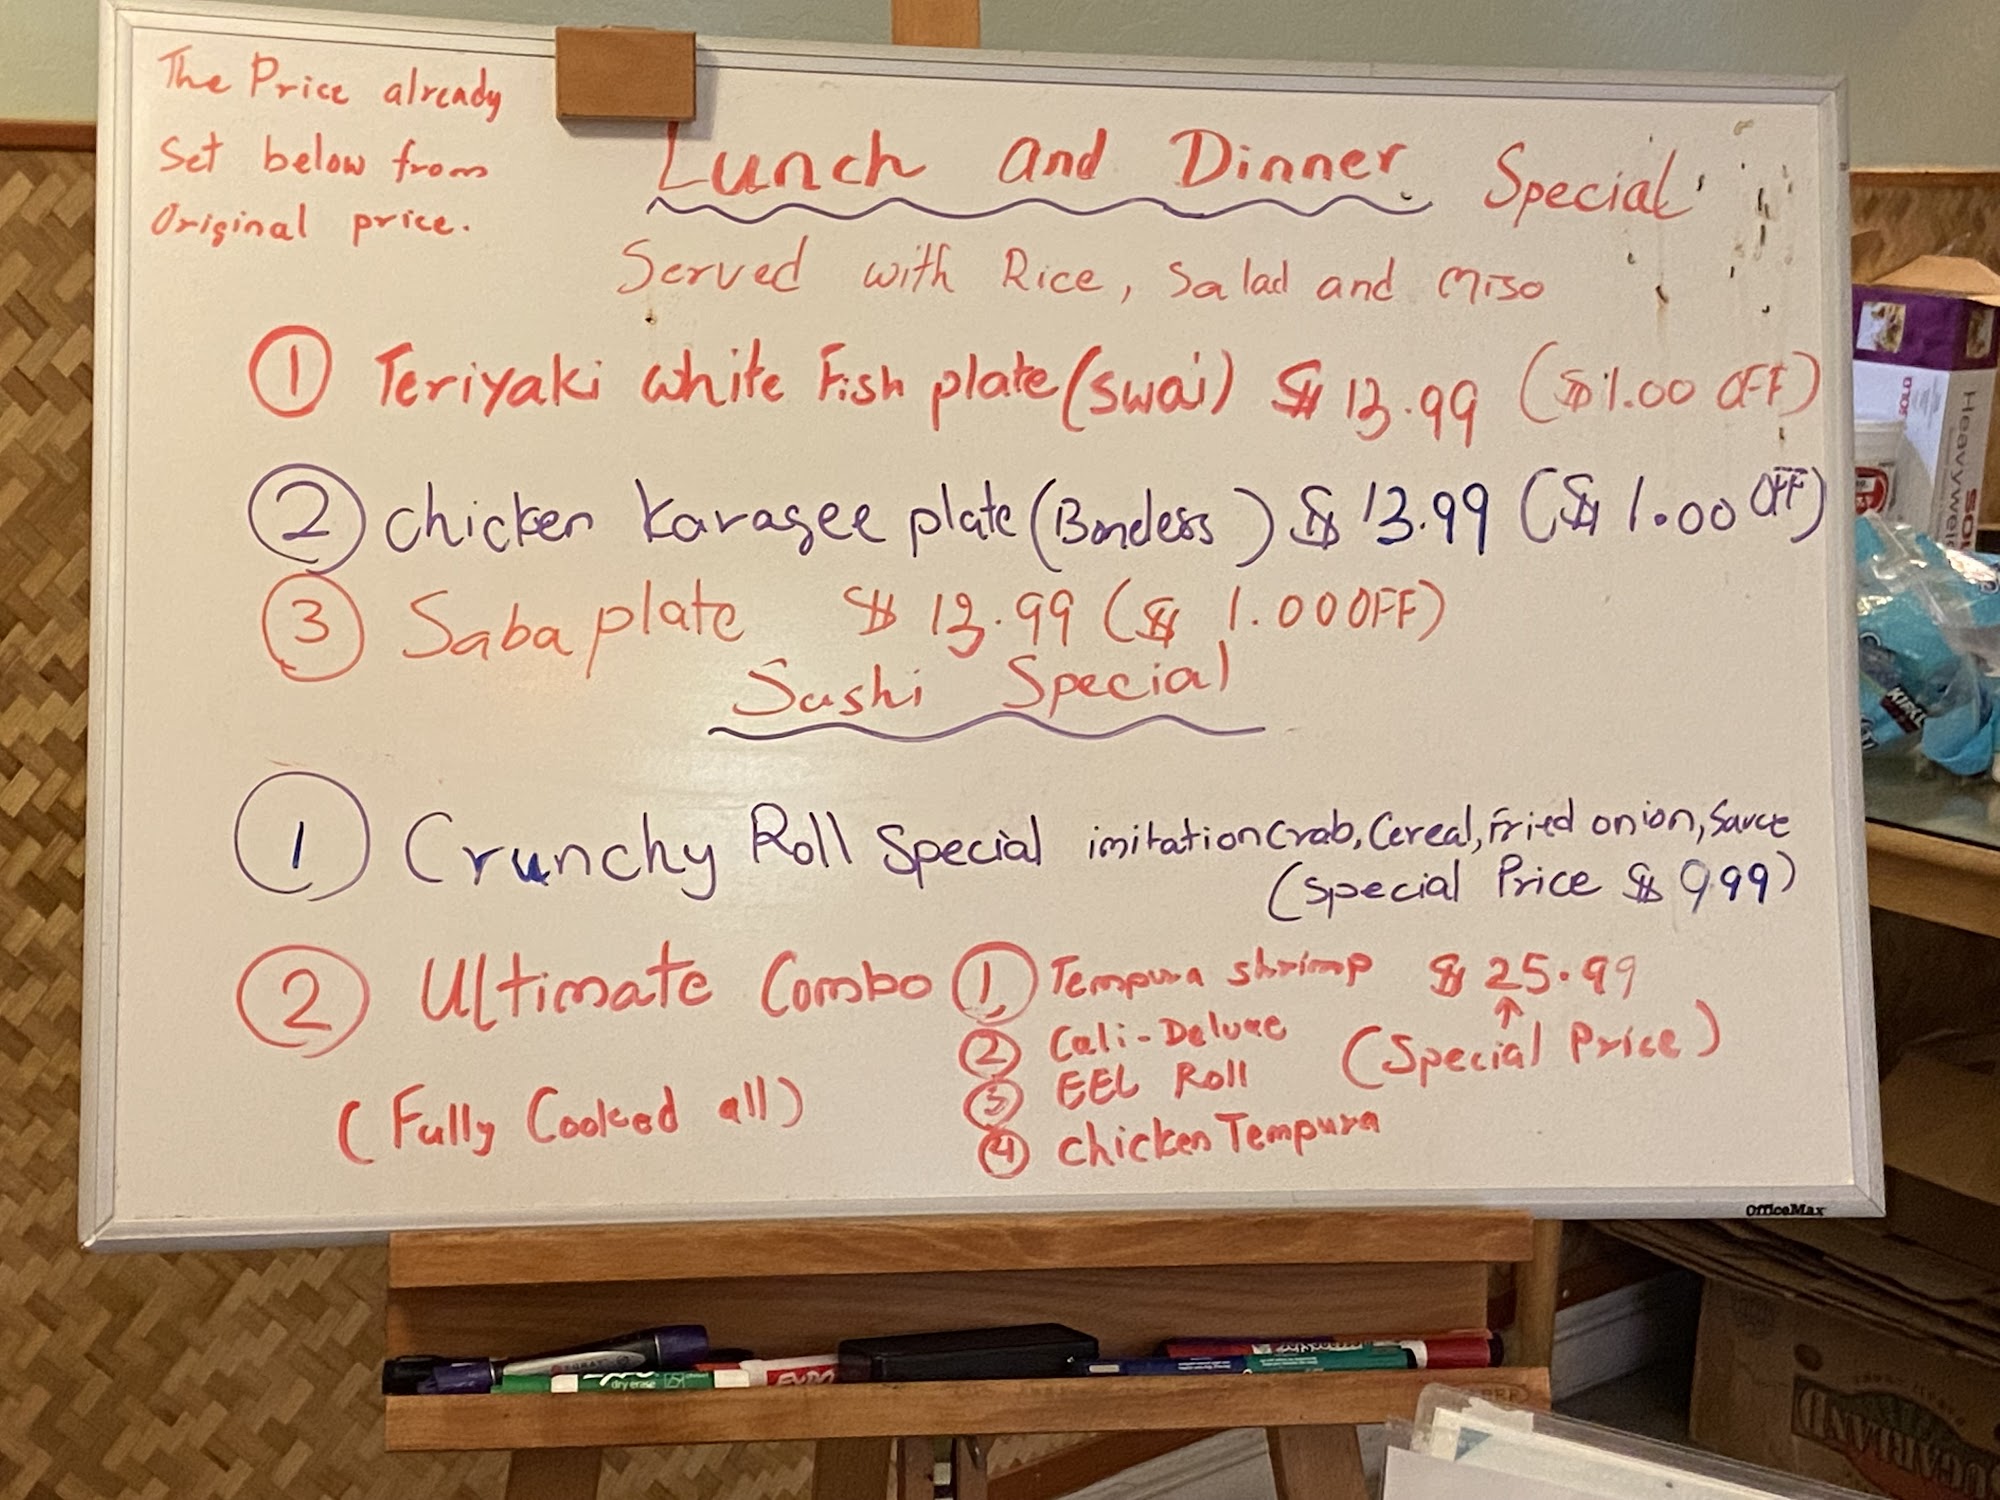 The Price already
Set below from
Original price.
Lunch and Dinner Special
Served with Rice, Salad and Miso
① Teriyaki white Fish plate (swai) $ 13.99 ($1.00 OFF)
② Chicken Karagee plate (Boneless) $ 13.99 ($ 1.00 OFF)
③ Saba plate $ 13.99 ($ 1.00 OFF)
Sushi Special
① Crunchy Roll Special imitation Crab, Cereal, Fried onion, Sauce
(Special Price $ 9.99)
② Ultimate Combo ① Tempura shrimp $ 25.99
② Cali-Deluxe (Special Price)
③ EEL Roll
(Fully Cooked all)
④ Chicken Tempura
OfficeMax
Heavyweig
KIRKL
dry erase
EXPO